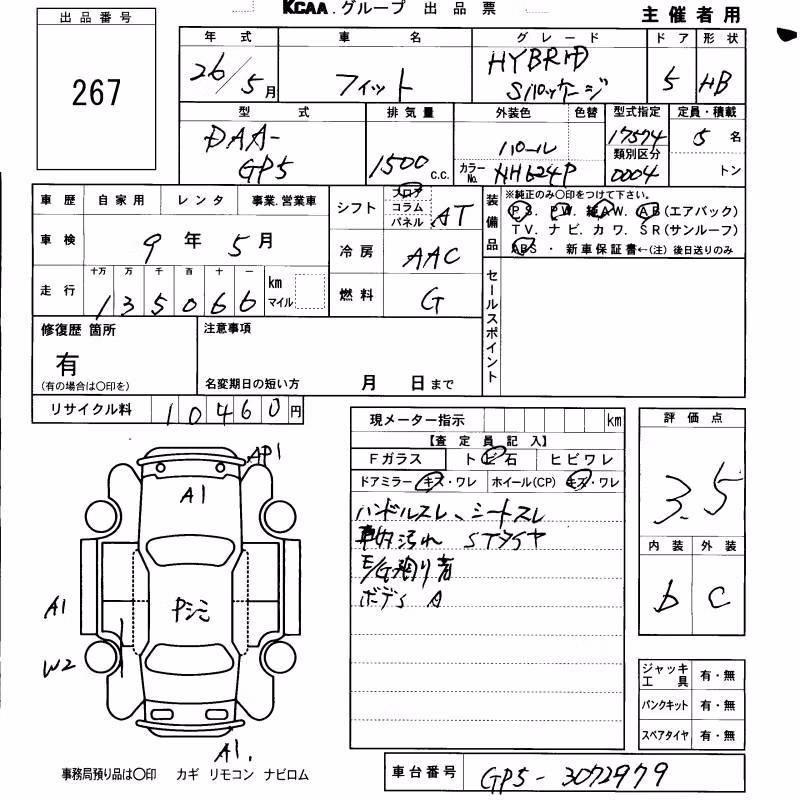 KCAA.グループ 出品票
主催者用
出品番号
267
年式 車名 グレード ドア 形状
26/5月 フィット HYBRID Sパッケージ 5 HB
型式 排気量 外装色 色替 型式指定 定員・積載
DAA-GP5 1500 C.C. パール 17574 5名
カラーNo. NH624P 類別区分 0004 トン
車歴 自家用 レンタ 事業.営業車
車検 9年5月
走行 十万 万 千 百 十 一 km マイル
135066
シフト フロア コラム パネル AT
冷房 AAC
燃料 G
装備品
※純正のみ〇印をつけて下さい。
PS. PW. 純AW. AB(エアバック)
TV. ナビ. カワ. SR(サンルーフ)
ABS ・ 新車保証書←(注) 後日送りのみ
セールスポイント
修復歴 箇所
有
(有の場合は〇印を)
注意事項
名変期日の短い方 月 日まで
リサイクル料 10460円
現メーター指示 km
【査定員記入】
Fガラス トビ石 ヒビワレ
ドアミラー キズ・ワレ ホイール(CP) キズ・ワレ
ハンドルスレ、シートスレ
車内汚れ STタイヤ
ボディ A
評価点
3.5
内装 外装
b C
AP1
A1
A1
W2
A1.
ジャッキ 工具 有・無
パンクキット 有・無
スペアタイヤ 有・無
事務局預り品は〇印 カギ リモコン ナビロム
車台番号 GP5-3072979